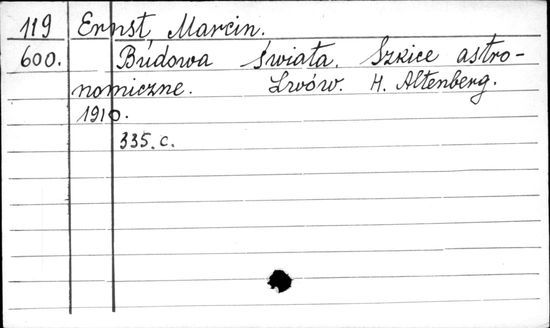 119 Ernst, Marcin.
600. Budowa świata. Szkice astro-
nomiczne. Lwów. H. Altenberg.
1910.
335. c.